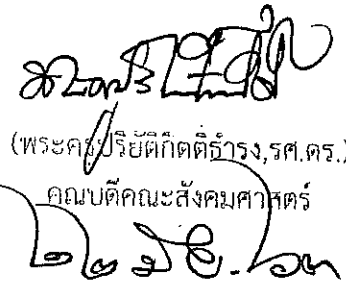 (พระครูปริยัติกิตติธำรง,รศ.ดร.)
คณบดีคณะสังคมศาสตร์
๒๒ มิ.ย. ๖๓